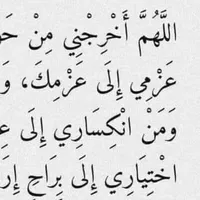 اللَّهُمَّ أَخْرِجْنِي مِنْ حَو
عَزْمِي إِلَى عَزْمِكَ، وَ
وَمَنْ انْكِسَارِي إِلَى عِ
اخْتِيَارِي إِلَى بِرَاحِ إِرَ